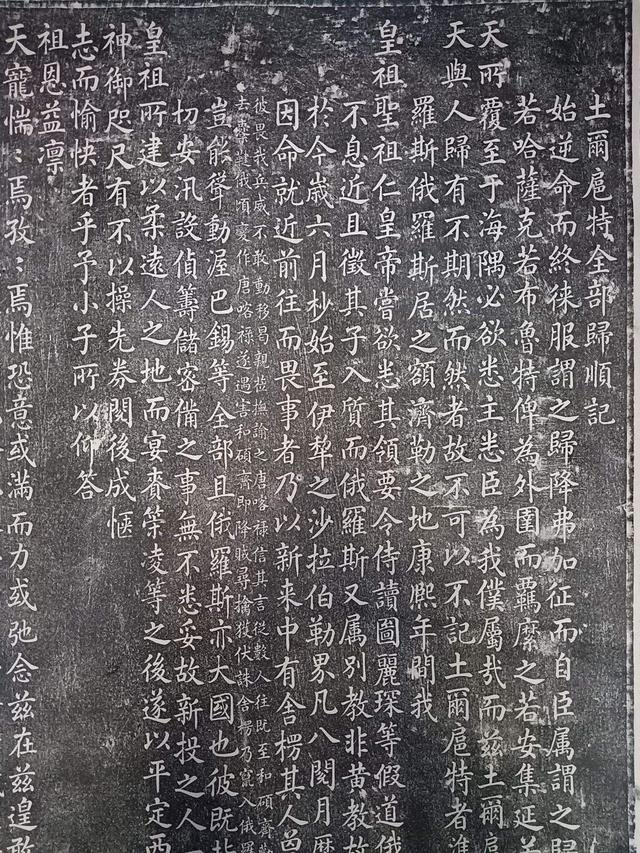 土爾扈特全部歸順記
始逆命而終徠服謂之歸降弗加征而自臣属謂之歸
若哈薩克若布魯特俾為外圉而羈縻之若安集延若
天所覆至于海隅必欲悉主悉臣為我僕屬哉而兹土爾扈
天與人歸有不期然而然者故不可以不記土爾扈特者準
羅斯俄羅斯居之額濟勒之地康熙年間我
皇祖聖祖仁皇帝嘗欲悉其領要令侍讀圖麗琛等假道俄
不息近且徵其子入質而俄羅斯又属别教非黄教故
於今歲六月杪始至伊犂之沙拉伯勒界凡八閱月歷
因命就近前往而畏事者乃以新来中有舍楞其人曾
彼畏我兵威不敢動移曷親撫諭之唐喀禄信其言從數人往既至和碩齊
去俄頃變作唐喀禄遂遇害和碩齊即降賊尋擒獲伏誅舍楞乃竄入俄羅
豈能聳動渥巴錫等全部且俄羅斯亦大國也彼既背
切安汛設偵籌儲密備之事無不悉妥故新投之人
皇祖所建以柔遠人之地而宴賚策凌等之後遂以平定西
神御咫尺有不以操先券閱後成愜
志而愉快者乎予小子所以仰答
祖恩益凛
天寵惴〻焉孜〻焉惟恐意或滿而力或弛念兹在兹遑敢